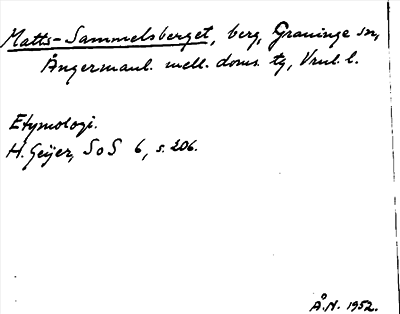 Matts-Sammelsberget, berg, Graninge sn,
Ångermanl. mell. doms. tg, Vnl. l.
Etymologi.
H. Geijer, SoS 6, s. 206.
Å.N. 1952.